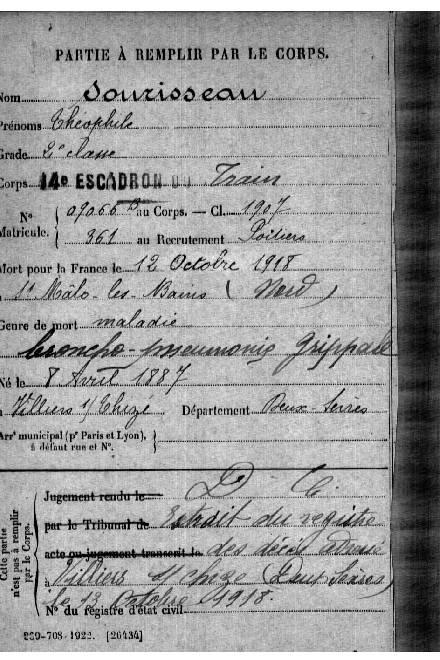 PARTIE À REMPLIR PAR LE CORPS.
Nom Sourisseau
Prénoms Théophile
Grade 2e classe
Corps 14e ESCADRON DU Train
N° Matricule. { 09066 B au Corps. — Cl. 1907
361 au Recrutement Poitiers
Mort pour la France le 12 Octobre 1918
à St Mâlo-les-Bains (Nord)
Genre de mort maladie
broncho-pneumonie Grippale
Né le 8 Avril 1887
à Villiers s/ Chizé Département Deux-Sèvres
Arrt municipal (pr Paris et Lyon),
à défaut rue et N°.
Cette partie n'est pas à remplir par le Corps.
Jugement rendu le D C.
par le Tribunal de Extrait du registre
acte ou jugement transcrit le des décès
à Villiers s/ chizé (Deux Sèvres)
le 13 Octobre 1918.
N° du registre d'état civil
229-708-1922. [26434]